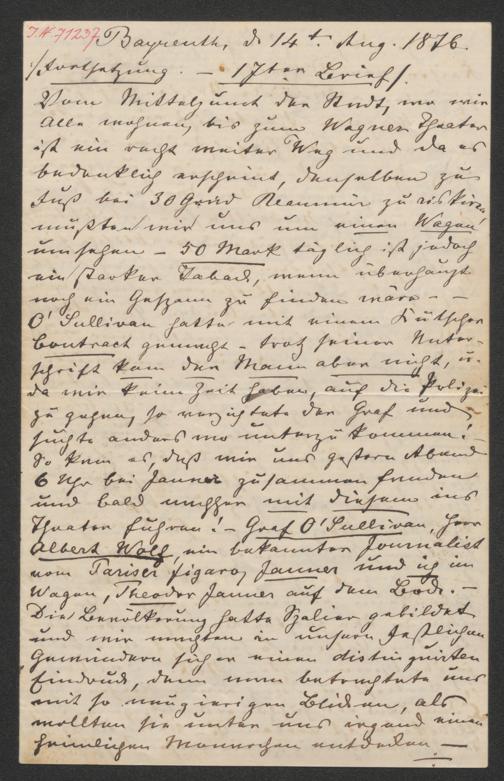 I.N. 71237
Bayreuth, d. 14t. Aug. 1876.
/Fortsetzung. – 17ter Brief/.
Vom Mittelpunct der Stadt, wo wir
Alle wohnen, bis zum Wagner Theater
ist ein recht weiter Weg und da es
bedenklich erscheint, denselben zu
Fuß bei 30 Grad Reaumür zu riskiren,
mußten wir uns um einen Wagen
umsehen – 50 Mark täglich ist jedoch
ein starker Taback, wenn überhaupt
noch ein Gespann zu finden wäre – –
O'Sullivan hatte mit einem Kutscher
Contract gemacht – trotz seiner Unter-
schrift kam der Mann aber nicht, u.
da wir keine Zeit haben, auf die Polizei
zu gehen, so verzichtete der Graf und
suchte anderswo unterzukommen! –
So kam es, daß wir uns gestern Abend
6 Uhr bei Jauner zusammen fanden
und bald nachher mit diesem ins
Theater fuhren! – Graf O'Sullivan, Herr
Albert Wolf, ein bekannter Journalist
vom Pariser Figaro, Jauner und ich im
Wagen, Theodor Jauner auf dem Bock. –
Die Bevölkerung hatte Spalier gebildet
und wir machten in unsern festlichen
Gewändern sicher einen distinguirten
Eindruck, denn man betrachtete uns
mit so neugierigen Blicken, als
wollten sie unter uns irgend einen
heimlichen Monarchen entdecken. –